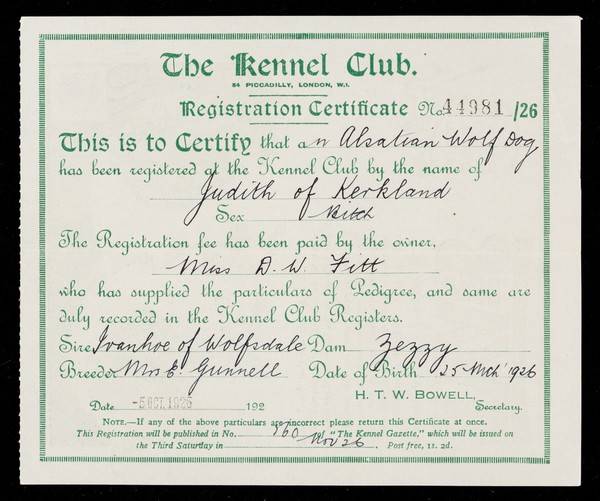 The Kennel Club.
84 PICCADILLY, LONDON, W.1.
Registration Certificate No. 44981 /26
This is to Certify that an Alsatian Wolf Dog
has been registered at the Kennel Club by the name of
Judith of Kerkland
Sex Bitch
The Registration fee has been paid by the owner,
Miss D. W. Fitt
who has supplied the particulars of Pedigree, and same are
duly recorded in the Kennel Club Registers.
Sire Ivanhoe of Wolfsdale Dam Zezzy
Breeder Mrs E. Gunnell Date of Birth 25 Mch 1926
H. T. W. BOWELL,
Date -5 OCT. 1926 192 Secretary.
NOTE.—If any of the above particulars are incorrect please return this Certificate at once.
This Registration will be published in No. 560 of "The Kennel Gazette," which will be issued on
the Third Saturday in Nov 26 Post free, 1s. 2d.